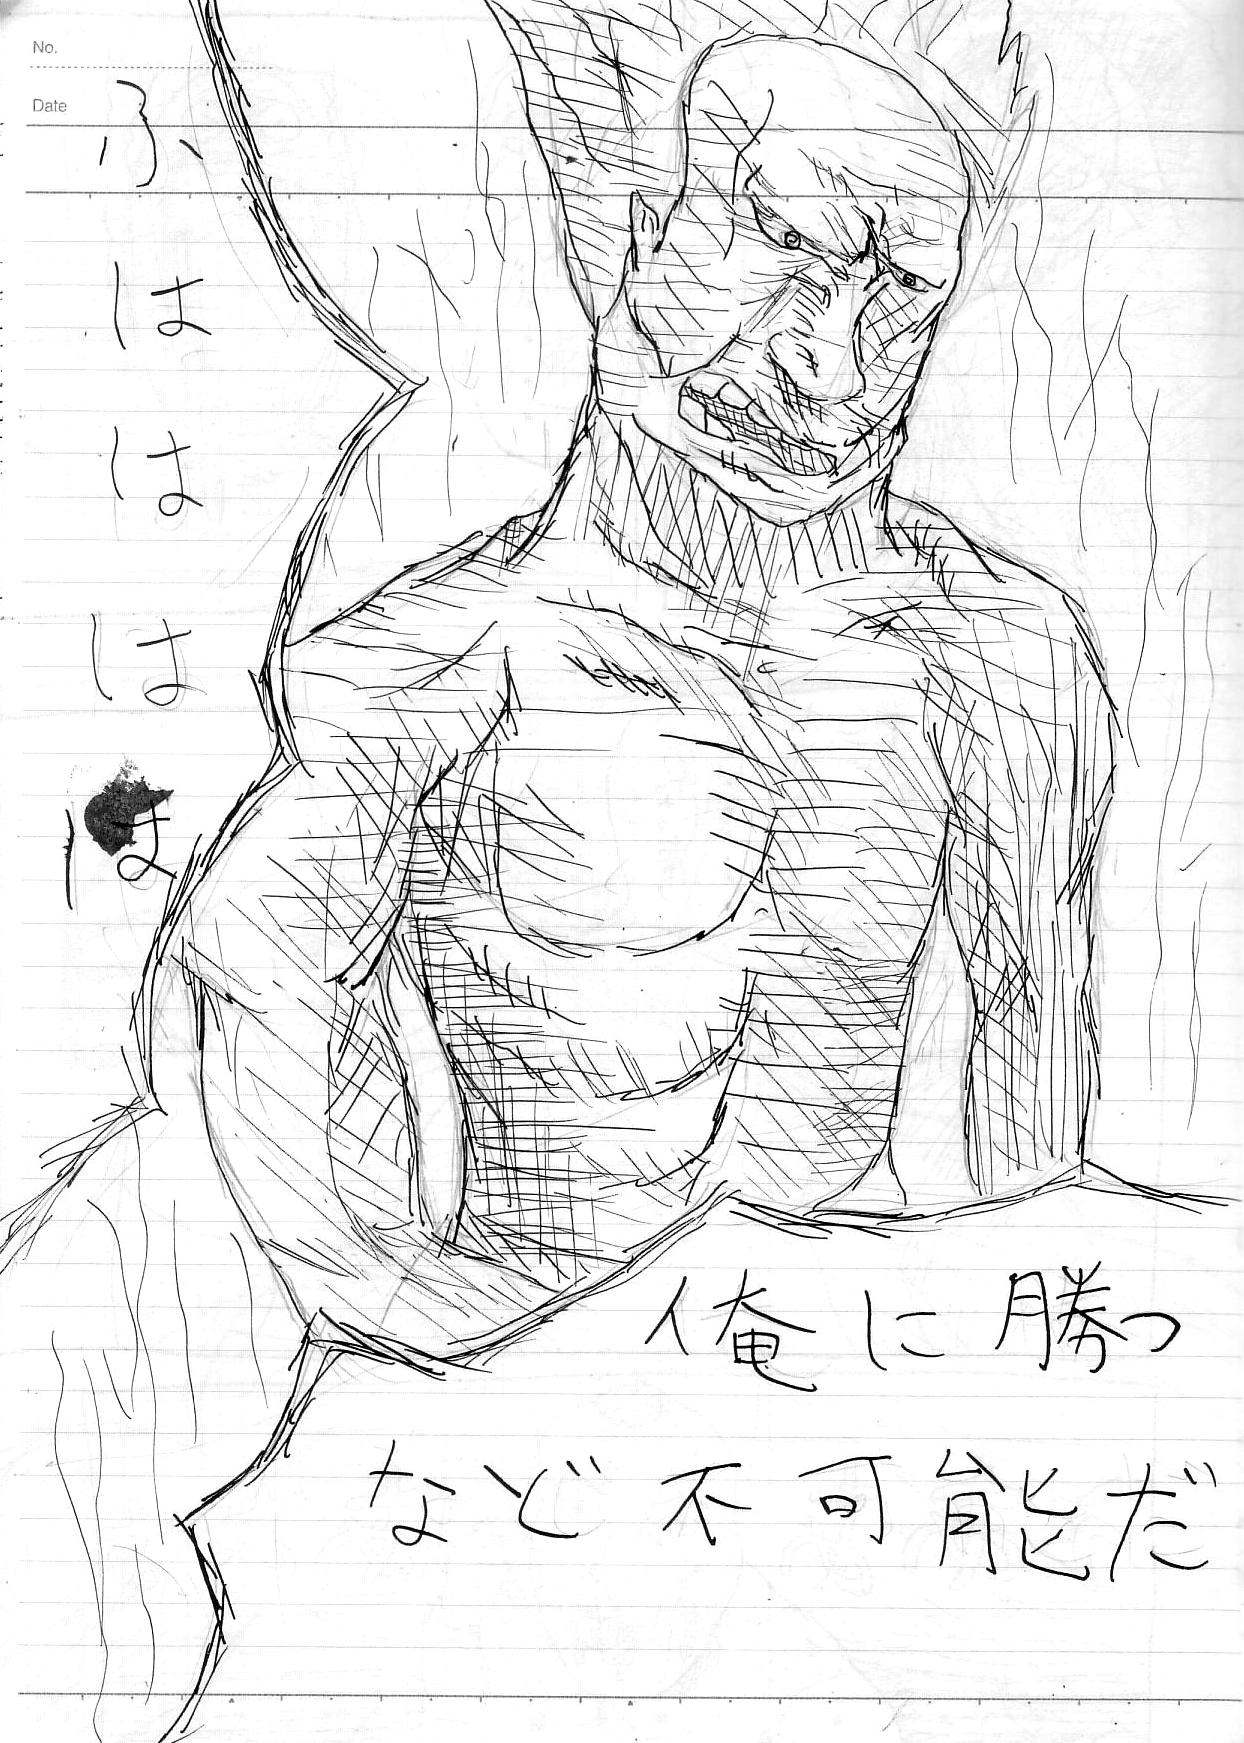 No.
Date
ふはははは
俺に勝つ
など不可能だ